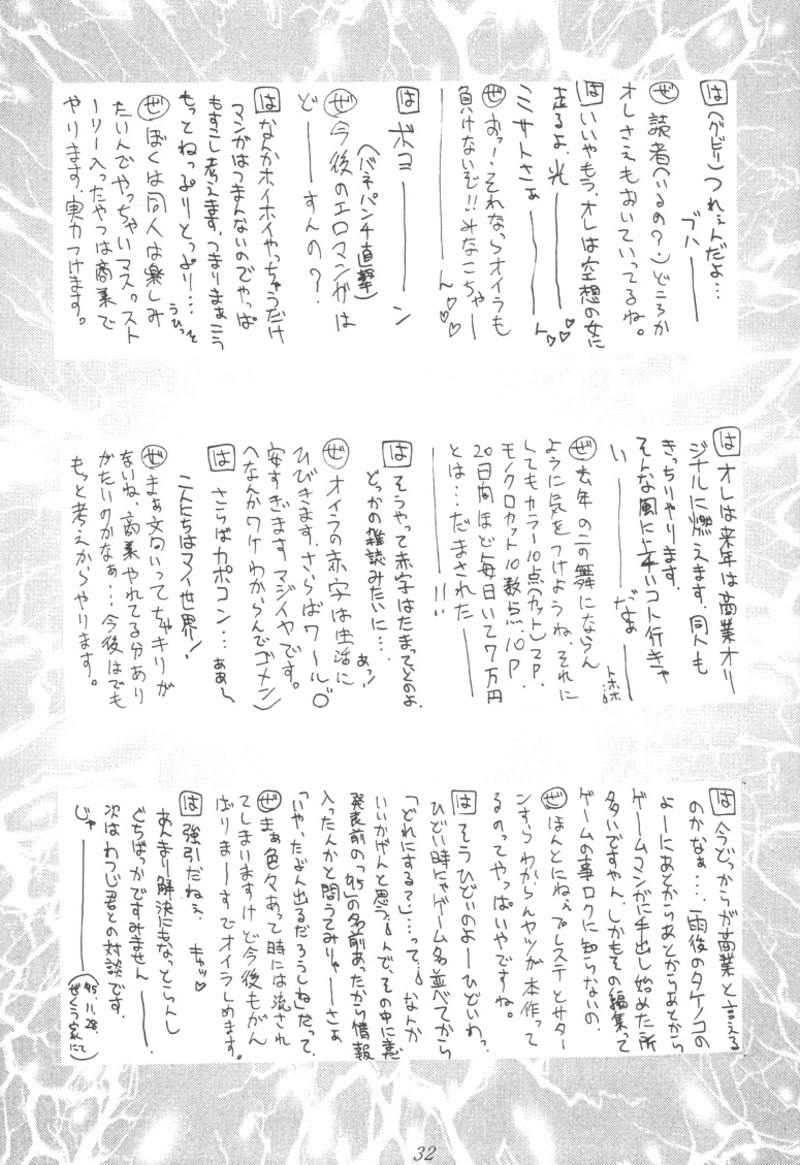 は (グビリ) つれぇんだよ…
ブハ――
ぜ 読者(いるの?)どころか
オレさえもおいていってるね。
は いいやもう、オレは空想の女に
走るよ、光――
ミサトさぁ――ん♡♡♡
ぜ おっ!それならオイラも
負けないぞ!!みなこちゃー
――ん♡♡♡
は ボコ――ン
(バネパンチ直撃)
ぜ 今後のエロマンガは
ど――すんの?
は なんかホイホイやっちゃうだけ
マンガはつまんないのでやっぱ
もすこし考えます。つまりまぁこう
もっとねっぷりとっぷり… うひっっと
ぜ ぼくは同人は楽しみ
たいんでやっちゃいマス。スト
ーリー入ったやつは商業で
やります、実力つけます。
は オレは来年は商業オリ
ジナルに燃えます、同人も
きっちりやります。
そんな風に上手いコト行きゃ
い――だよ―― トホホ…
ぜ 去年の二の舞にならん
ように気をつけようね、それに
してもカラー10点(カット)2P、
モノクロカット10数点、10P、
20日間ほど毎日いて7万円
とは…だまされた――
――!!
は そうやって赤字はたまってくのよ、
どっかの雑誌みたいに… あっ!
ぜ オイラの赤字は生活に
ひびきます、さらばワールド
安すぎます マジイヤです。
(なんかワケわからんでゴメン)
は さらばカポコン…ああ〜
こんにちはマイ世界!
ぜ まぁ文句いってちゃキリが
ないね、商業やれてる分あり
がたいのかなぁ…今後はでも
もっと考えからやります。
は 今どっからが商業と言える
のかなぁ…雨後のタケノコの
よーにあとからあとからあとから
ゲームマンガに手出し始めた所
多いですやん、しかもその編集って
ゲームの事ロクに知らないの、
ぜ ほんとにねぇプレステとサター
ンすらわからんヤツが本作って
るのってやっぱいやですね。
は そうひどいのよーひどいわっ、
ひどい時にゃゲーム名並べてから
「どれにする?」…って…なんか
いいかげんと思う。んで、その中に未
発表前の「'95」の名前あったから情報
入ったんかと問うてみりゃーさぁ
「いや、たぶん出るだろうしね」だって、
ぜ まぁ色々あって時には流され
てしまいますけど今後もがん
ばりまーすでオイラしめます。
は 強引だねぇ、 キャッ♡
あんまり解決にもなっとらんし
ぐちばっかですみません――、
次はわつじ君との対談です、
じゃ―― ('95.11.28、ぜくう家にて)
32